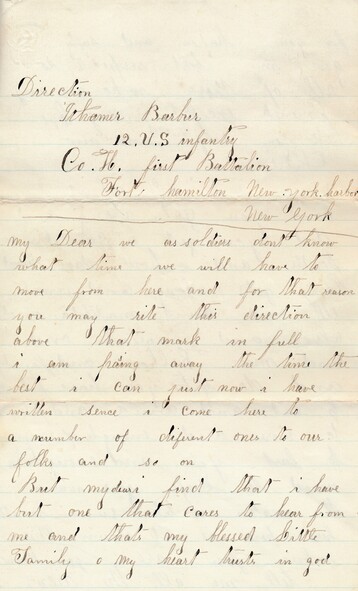 Direction
Ithamer Barbur
12. U.S infantry
Co. H. first Battalion
Fort Hamilton New York harbor
New York
my Dear we as soldiers dont know
what time we will have to
move from here and for that reason
you may rite this direction
above that mark in full
i am away the time the
best i can just now i have
written sence i come here to
a number of diferent ones to our
folks and so on
But my dear i find that i have
but one that cares to hear from
me and thats my blessed little
Family o my heart trusts in god